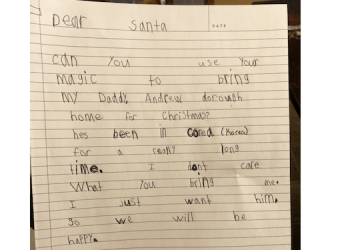 Dear Santa
can you use your
magic to bring
my Daddy, Andrew dorough
home for Christmas?
hes been in corea (Korea)
for a really long
time. I dont care
What You bring me.
I just want him.
so we will be
happy.